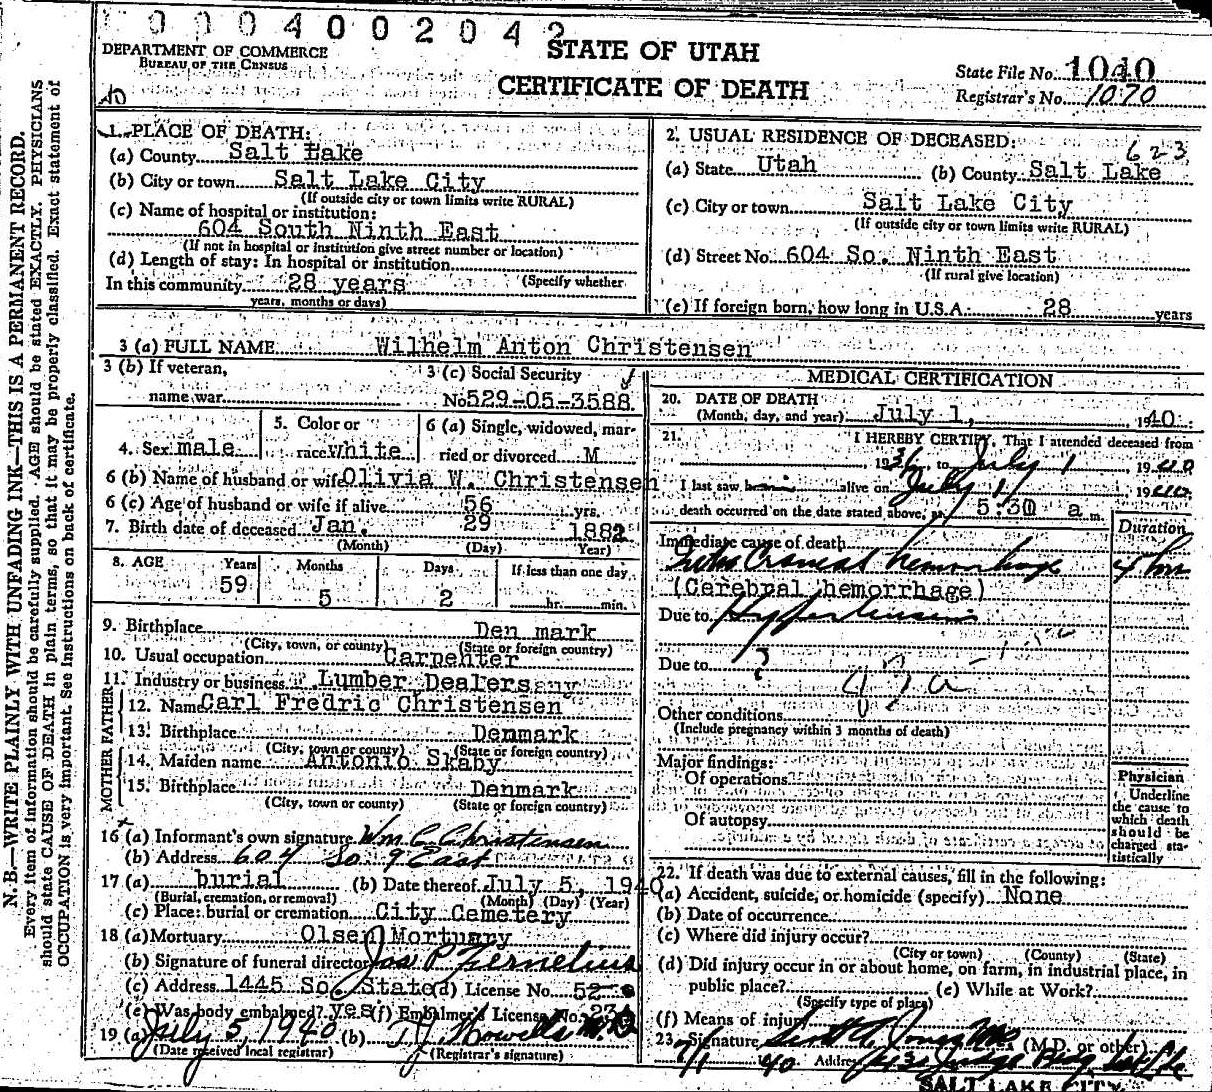 0004002042
DEPARTMENT OF COMMERCE
BUREAU OF THE CENSUS
STATE OF UTAH
CERTIFICATE OF DEATH
State File No. 1040
Registrar's No. 1070
1. PLACE OF DEATH:
(a) County Salt Lake
(b) City or town Salt Lake City
(If outside city or town limits write RURAL)
(c) Name of hospital or institution:
604 South Ninth East
(If not in hospital or institution give street number or location)
(d) Length of stay: In hospital or institution
(Specify whether
In this community 28 years
years, months or days)
2. USUAL RESIDENCE OF DECEASED:
623
(a) State Utah (b) County Salt Lake
(c) City or town Salt Lake City
(If outside city or town limits write RURAL)
(d) Street No. 604 So. Ninth East
(If rural give location)
(e) If foreign born, how long in U.S.A. 28 years
3 (a) FULL NAME Wilhelm Anton Christensen
3 (b) If veteran,
name war
3 (c) Social Security
No. 529-05-3588
4. Sex male
5. Color or
race white
6 (a) Single, widowed, mar-
ried or divorced M
6 (b) Name of husband or wife Olivia W. Christensen
6 (c) Age of husband or wife if alive 56 yrs.
7. Birth date of deceased Jan. 29 1882
(Month) (Day) Year)
8. AGE Years Months Days If less than one day
59 5 2 hr. min.
9. Birthplace Den mark
(City, town, or county) (State or foreign country)
10. Usual occupation Carpenter
11. Industry or business Lumber Dealers
FATHER
12. Name Carl Fredric Christensen
13. Birthplace Denmark
(City, town or county) (State or foreign country)
MOTHER
14. Maiden name Antonio Skaby
15. Birthplace Denmark
(City, town or county) (State or foreign country)
16 (a) Informant's own signature Wm C Christensen
(b) Address 604 So 9 East
17 (a) burial (b) Date thereof July 5, 1940
(Burial, cremation, or removal) (Month) (Day) (Year)
(c) Place: burial or cremation City Cemetery
18 (a) Mortuary Olsen Mortuary
(b) Signature of funeral director Jos P Fernelius
(c) Address 1445 So. State (d) License No. 52
(e) Was body embalmed? yes (f) Embalmer's License No.
19 (a) July 5, 1940 (b) T.J. Howells M.D
(Date received local registrar) (Registrar's signature)
MEDICAL CERTIFICATION
20. DATE OF DEATH
(Month, day, and year) July 1, 1940
21. I HEREBY CERTIFY, That I attended deceased from
1936, to July 1 1940
I last saw him alive on July 1 1940
death occurred on the date stated above, at 5:30 a m.
Duration
Immediate cause of death
Intra Cranial hemorrhage 4 hrs
(Cerebral hemorrhage)
Due to Hypertension
Due to ?
Other conditions
(Include pregnancy within 3 months of death)
Major findings:
Of operations
Of autopsy
Physician
Underline
the cause to
which death
should be
charged sta-
tistically
22. If death was due to external causes, fill in the following:
(a) Accident, suicide, or homicide (specify) None
(b) Date of occurrence
(c) Where did injury occur?
(City or town) (County) (State)
(d) Did injury occur in or about home, on farm, in industrial place, in
public place? (e) While at Work?
(Specify type of place)
(f) Means of injury
23. Signature (M.D. or other)
7/1 1940 Address Judge Bldg
SALT LAKE CITY.
N. B.—WRITE PLAINLY WITH UNFADING INK—THIS IS A PERMANENT RECORD.
Every item of information should be carefully supplied. AGE should be stated EXACTLY. PHYSICIANS
should state CAUSE OF DEATH in plain terms, so that it may be properly classified. Exact statement of
OCCUPATION is very important. See instructions on back of certificate.